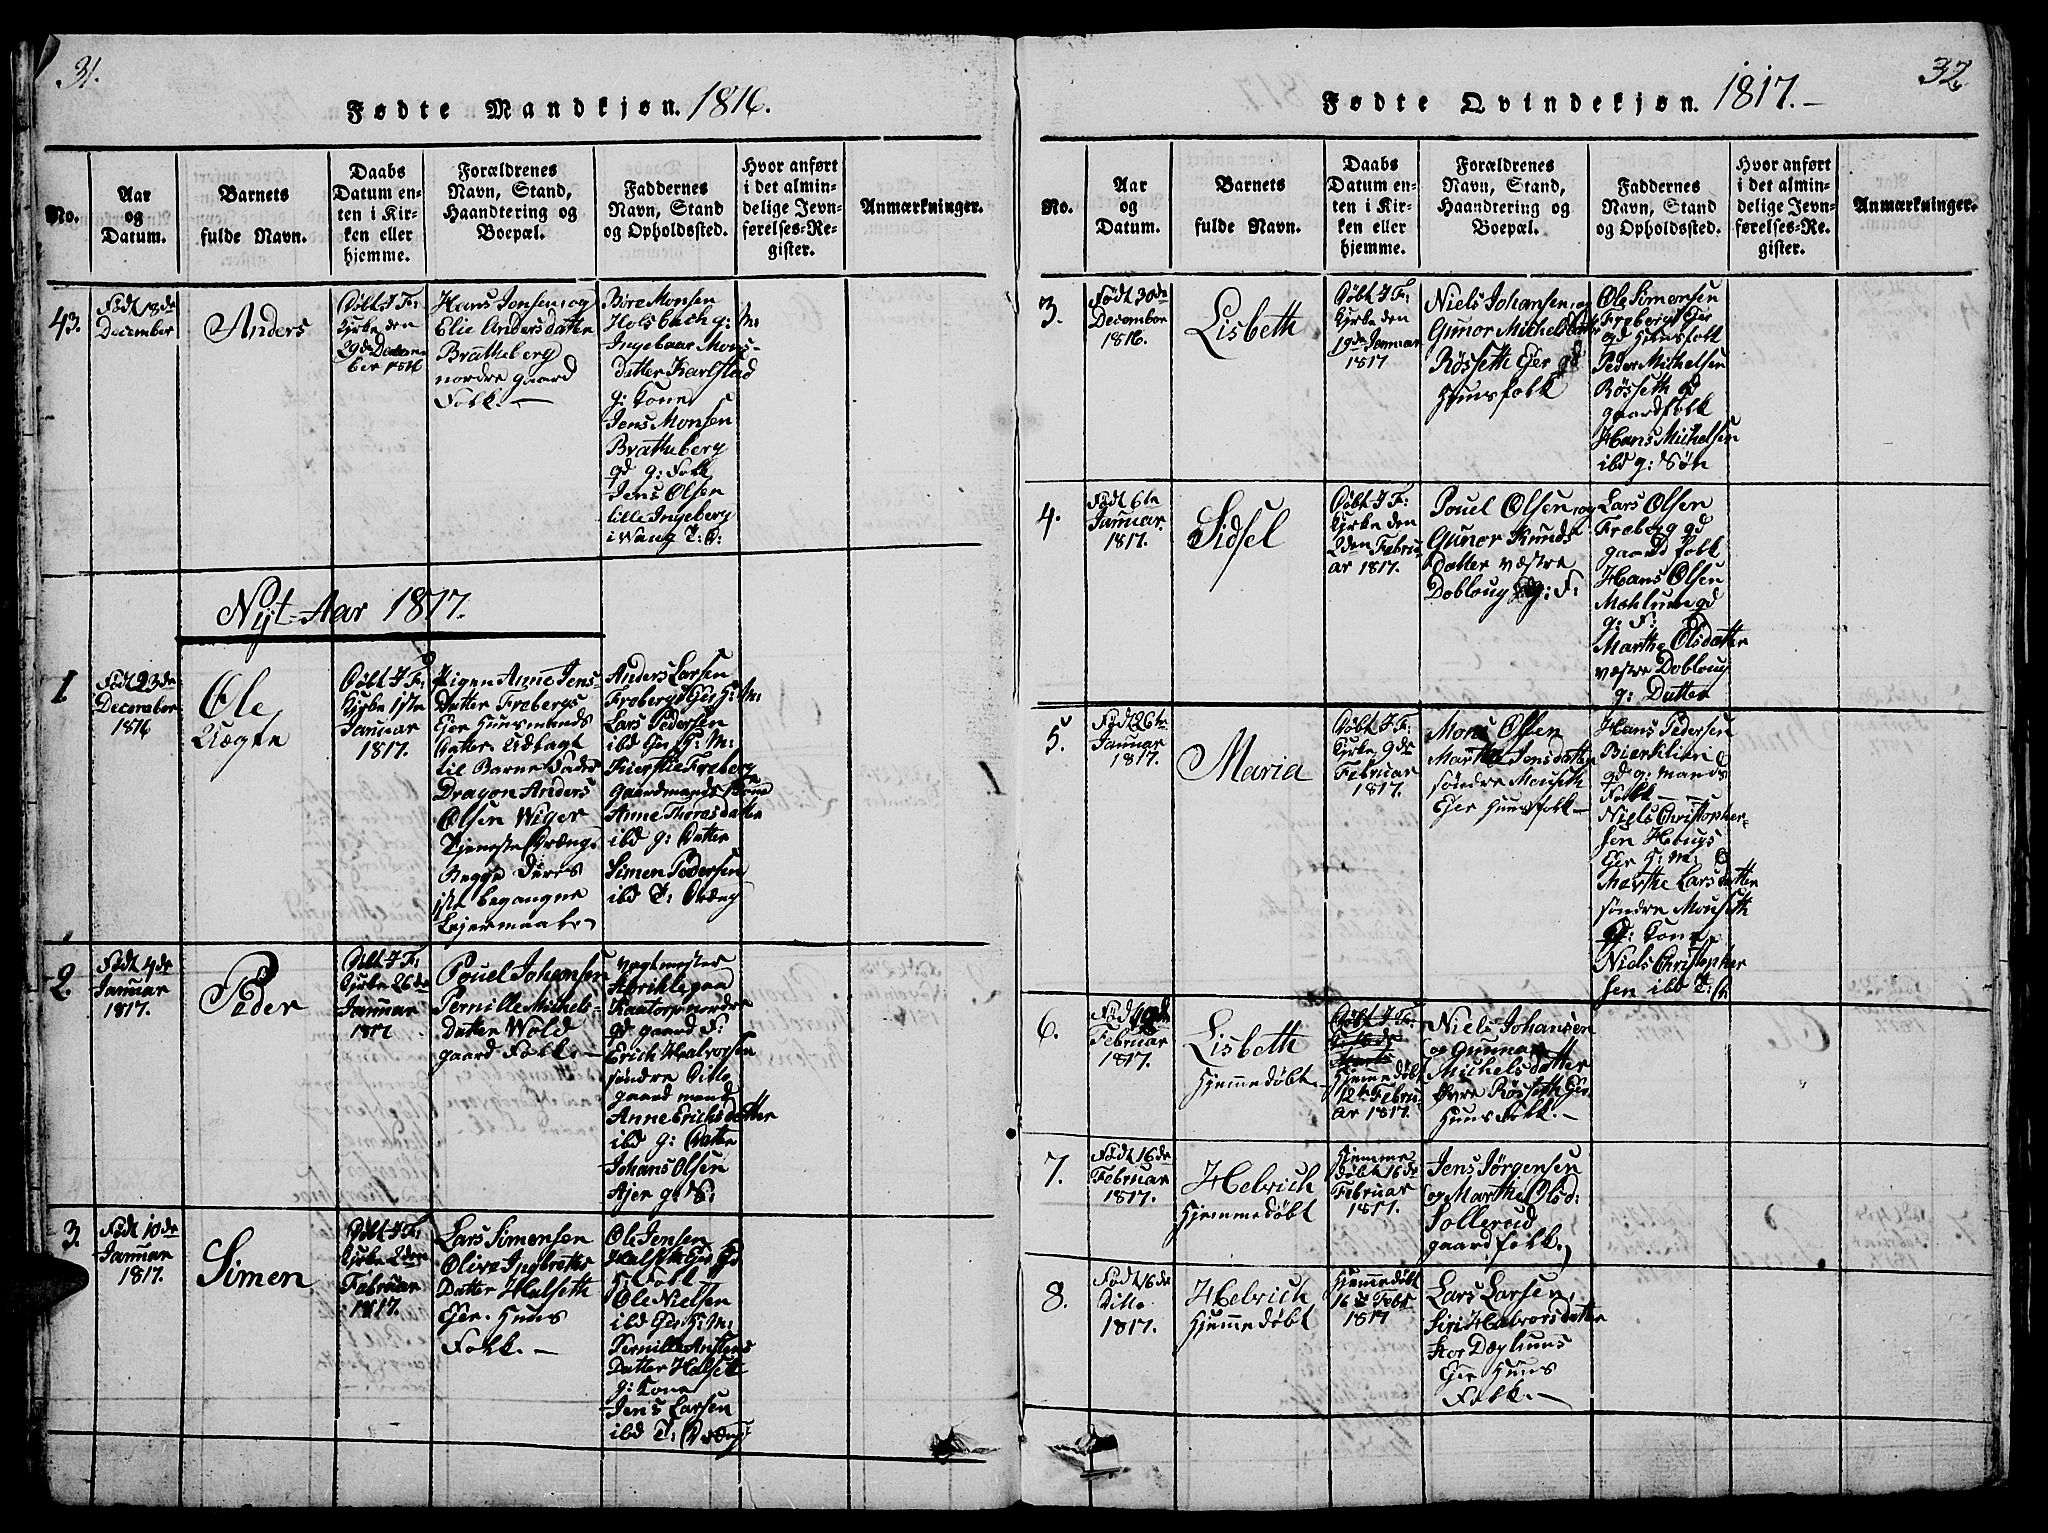 31.
Fødte Mandkjøn. 1816.
No.
Aar
og
Datum.
Barnets
fulde Navn.
Daabs
Datum en-
ten i Kir-
ken eller
hjemme.
Forældrenes
Navn, Stand,
Haandtering og
Boepæl.
Faddernes
Navn, Stand
og Opholdssted.
Hvor anført
i det almin-
delige Jevn-
førelses-Re-
gister.
Anmærkninger.
43.
Født 18de
December
Anders
Døbt I F:
Kirke den
29de Decem
ber 1816
Hans Jonsen og
Elie Andersdatter
Bratheberg
nordre gaard
Folk. —
Børe Monsen
Holsbach g: M:
Ingebaar Mons-
datter Karlstad
g: Cone
Jens Monsen
Bratheberg
gd g: Folk
Jens Olsen
lille Ingeberg
i Wang T: D:
Nyt-Aar 1817.
1
Født 23de
December
1816
Ole
Uægte
Døbt I F:
Kirke 1ste
Januar
1817.
Pigen Anne Jens-
Datter Frobergs
Ejer Huusmands
Datter Udlagt
til Barne Fader
Dragon Anders
Olsen Wiger
Tjeneste Dræng
Begge Deres
1ste begangne
Lejermaale
Anders Larsen
Froberg Ejer H: M:
Lars Pedersen
ibd Ejer H: M:
Kierstie Froberg
gaardmands Kone
Anne Thorasdatter
ibd g: Datter
Simen Pedersen
ibd T: Dræng
2.
Født 4de
Januar
1817.
Peder
Døbt I F:
Kirke 26de
Januar
1817
Pouel Johansen
Pernille Michels-
Datter Wold
gaard Folk. —
Vagtmester
Kantorp nordre
gd gaard F:
Erich Halvorsen
søndre Ditto
gaardmand
Anne Erichsdatter
ibd g: Datter
Johans Olsen
Ajer g: S:
3.
Født 10de
Januar
1817.
Simen
Døbt I F:
Kirke 2den
Februar
1817.
Lars Simensen
Olive Ingbretts
Datter Halseth
Ejer. Huus
Folk. —
Ole Jensen
Halseth Ejer gd
H Folk
Ole Nielsen
ibd Ejer H: M:
Pernille Anstens
Datter Halseth
g: Cone
Jens Larsen
ibd T: Dræng
32.
Fødte Qvindekjøn. 1817. —
No.
Aar
og
Datum.
Barnets
fulde Navn.
Daabs
Datum en-
ten i Kir-
ken eller
hjemme.
Forældrenes
Navn, Stand,
Haandtering og
Boepæl.
Faddernes
Navn, Stand
og Opholdssted.
Hvor anført
i det almin-
delige Jevn-
førelses-Re-
gister.
Anmærkninger.
3.
Født 30de
December
1816.
Lisbeth
Døbt I F:
Kirke den
19de Januar
1817
Niels Johansen og
Gunor Michelsdatter
Røsseth Ejer gd
Huusfolk
Ole Simensen
Froberg Ejer
gd Huusfolk
Peder Michelsen
Røsseth gd
gaardfolk
Hans Michelsen
ibd g: Søn
4.
Født 6te
Januar
1817.
Sidsel
Døbt I F:
Kirke den
2den Febru
ar 1817.
Pouel Olsen og
Gunor Knuds
Datter væstre
Dobloug g: F:
Lars Olsen
Froberg gd
gaard folk
Hans Olsen
Mæhlum gd
g: F:
Marthe Olsdatter
væstre Dobloug
g: Datter
5.
Født 26te
Januar
1817.
Maria
Døbt I F:
Kirke 9de
Februar
1817.
Mons Olsen
Marthe Jensdatter
søndre Mouseth
Ejer Huusfolk —
Hans Pedersen
gd g: Mands
Folk —
Niels Christopher-
sen Hougs
Ejer H: M:
Marthe Larsdatter
søndre Mouseth
H: Cone
Niels Christopher
sen ibd T: D
6.
Februar
1817.
Lisbeth
Hjemmedøbt
Døbt I F:
Hjemmedøbt
12te Febru
ar 1817.
Niels Johansen
og Gunnor
Michelsdatter
Øvre Røsseth Ejer
Huus Folk. —
7.
Født 16de
Februar
1817.
Helvich
Hjemmedøbt
Hjemme
døbt 16de
Februar
1817.
Jens Jørgensen
og Marthe Olsd:
Sollerud
gaardfolk.
8.
Født 16de
Ditto
1817.
Helvich
Hjemmedøbt
Hjemmedøbt
16de Febr
1817
Lars Larsen,
Siri Halvorsdatter
Stor Dæhlins
Ejer Huus
Folk. —